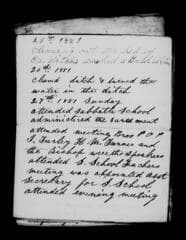 25th 1881
out
the
26th 1881
ditch & turned the
water in the ditch
27th 1881 Sunday
attended sabbath School
administered the sacrament
attended meeting Bros P O P
T. Turley H. M. Turner and
the Bishop were the speakers
attended S. School Teachers
meeting was appointed Asst
Secretary for S. School
attended evening meeting